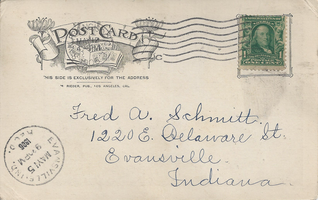 POST CARD
THIS SIDE IS EXCLUSIVELY FOR THE ADDRESS
M. RIEDER, PUB., LOS ANGELES, CAL.
Fred A. Schmitt.
1220 E. Delaware St.
Evansville.
Indiana.
EVANSVILLE, IND.
MAY 5
REC'D.